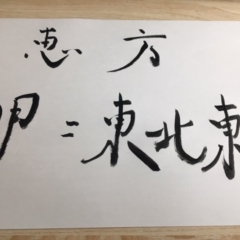 恵方
甲=東北東